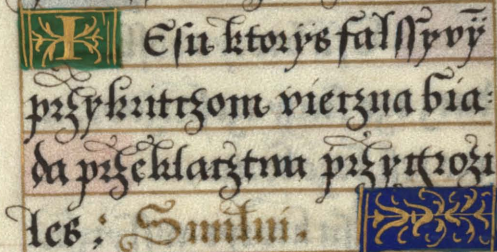 IEsu ktorys falssyvȳ
przykritczom vierzna bia-
da przeklarztwa przytrozi
les; Smilui.